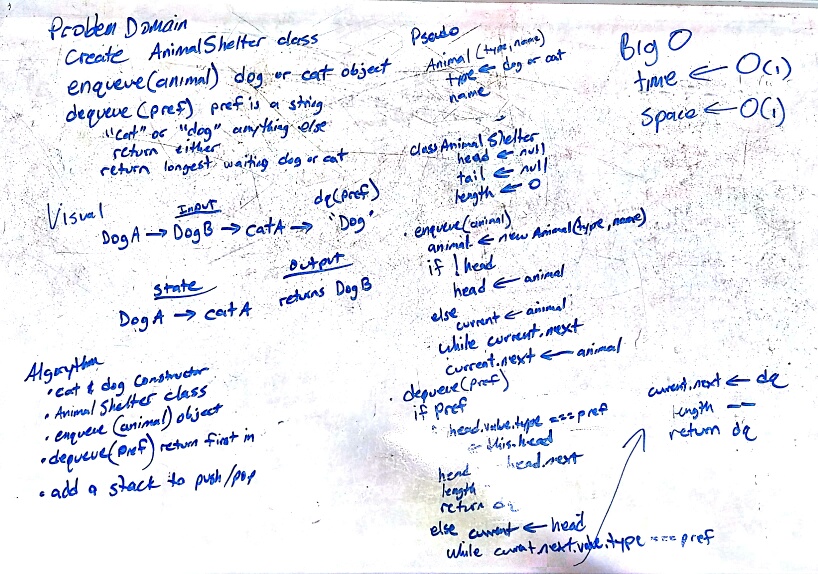 Problem Domain
Create AnimalShelter class
enqueue(animal) dog or cat object
dequeue (pref) pref is a string
"cat" or "dog" anything else
return either
return longest waiting dog or cat
Visual
Input
dq(pref)
DogA → DogB → catA → "Dog"
State
Output
DogA → catA
returns DogB
Algorythm
• cat & dog constructor
• Animal Shelter class
• enqueue (animal) object
• dequeue(pref) return first in
• add a stack to push/pop
Pseudo
Animal (type, name)
type ← dog or cat
name
class Animal Shelter
head ← null
tail ← null
length ← 0
• enqueue(animal)
animal ← new Animal(type, name)
if !head
head ← animal
else
current ← animal
while current.next
current.next ← animal
• dequeue(pref)
if pref
head.value.type === pref
= this.head
head head.next
length
return dq
else current ← head
while current.next.value.type === pref
current.next ← dq
length --
return dq
Big O
time ← O(1)
space ← O(1)